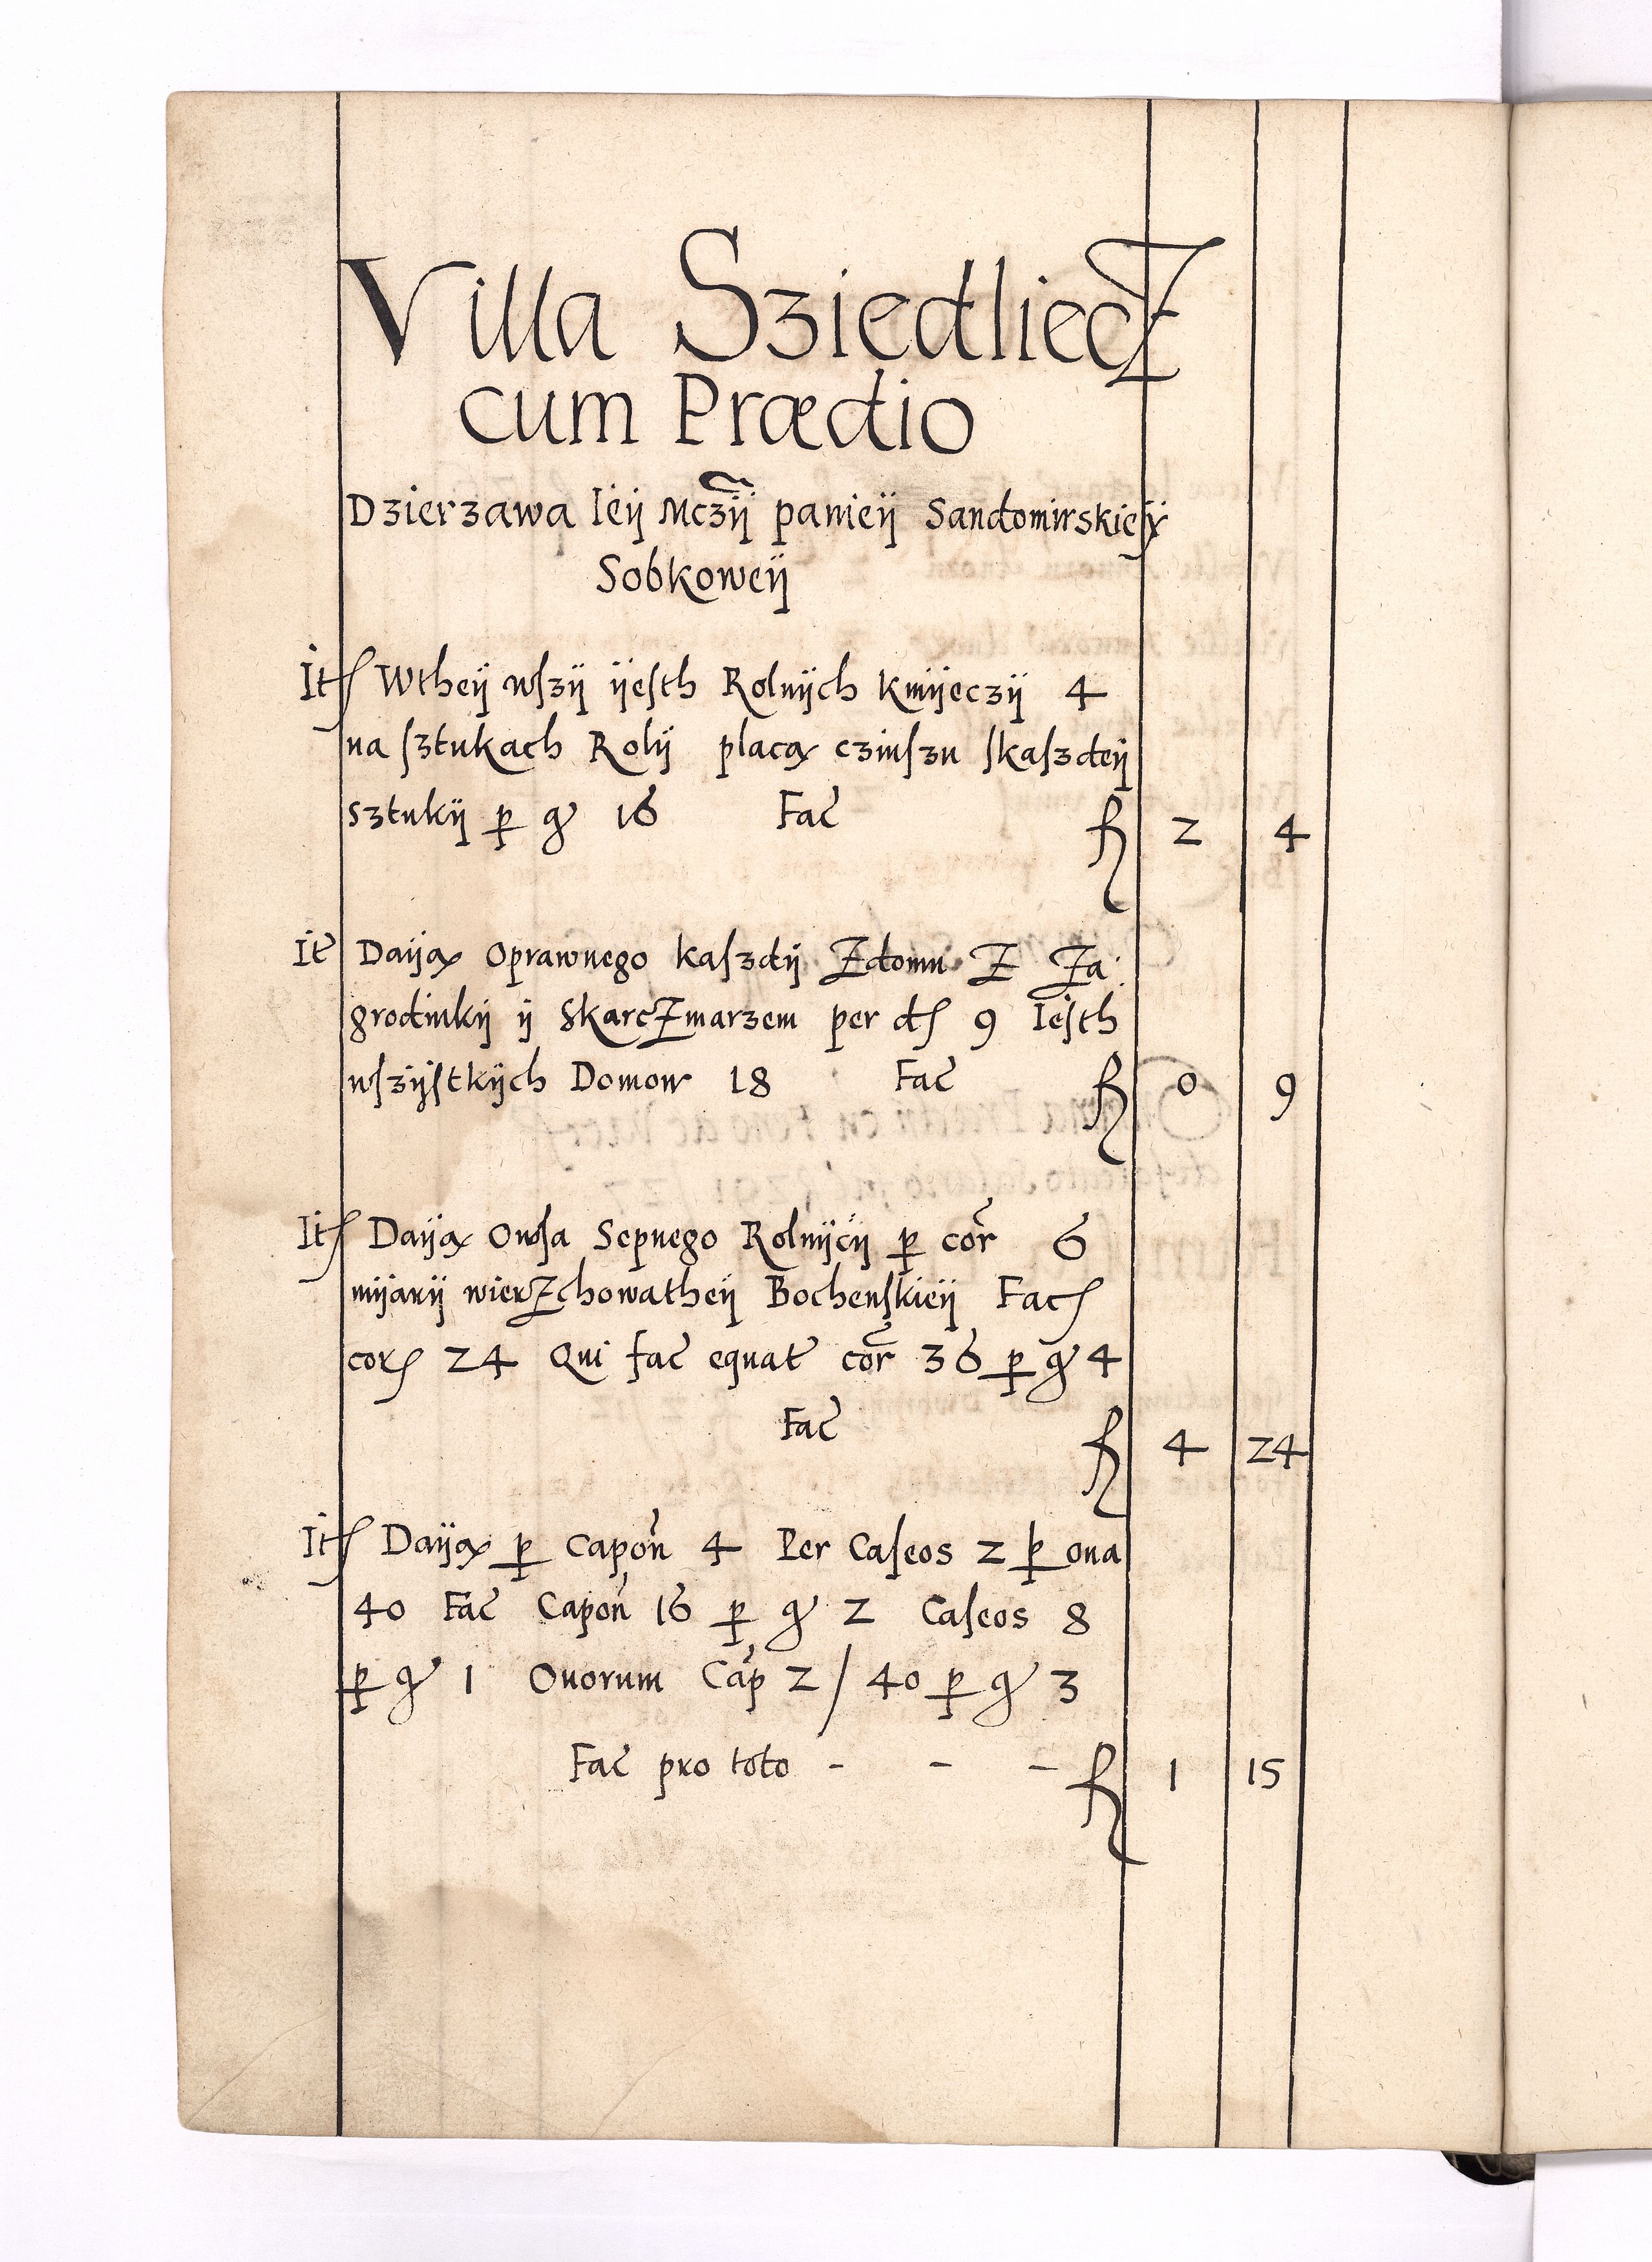 Villa Sziedliecz
cum Prædio
Dzierzawa Ieÿ Mczÿ panieÿ Sandomirskieÿ
Sobkoweÿ
Itſ Wtheÿ wſzÿ ÿeſth Rolnÿch Kmÿeczÿ 4
na ſztukach Rolÿ placą czinſzu ſkaſzdeÿ
sztukÿ p gr 16 Fac̃ fl 2 4
Itẽ Daÿą Oprawnego kaſzdÿ Zdomu Z Za:
grodnikÿ ÿ SkarcZmarzem per dſ 9 Ieſth
wſzÿſtkÿch Domow 18 Fac̃ fl 0 9
Itſ Daÿą Owſa Sepnego Rolnÿcÿ p cor̃ 6
mÿarÿ wierZchowatheÿ Bochenſkieÿ Facſ
corſ 24 Qui fac̃ equat̃ cor̃ 36 p gr 4
Fac̃ fl 4 24
Itſ Daÿą p Capoñ 4 Per Caſeos 2 p oua
40 Fac̃ Capoñ 16 p gr 2 Caſeos 8
p gr 1 Ouorum Cap̃ 2/40 p gr 3
Fac̃ pro toto - - - fl 1 15